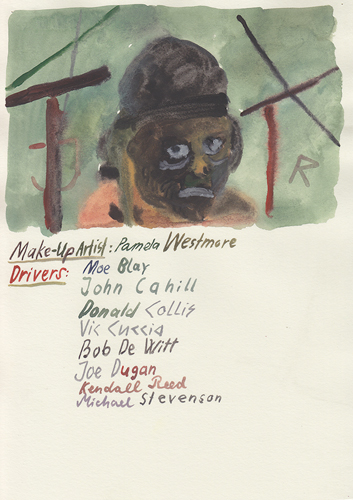 R
Make-Up Artist: Pamela Westmore
Drivers: Moe Blay
John Cahill
Donald Collis
Vic Cuccia
Bob De Witt
Joe Dugan
Kendall Reed
Michael Stevenson